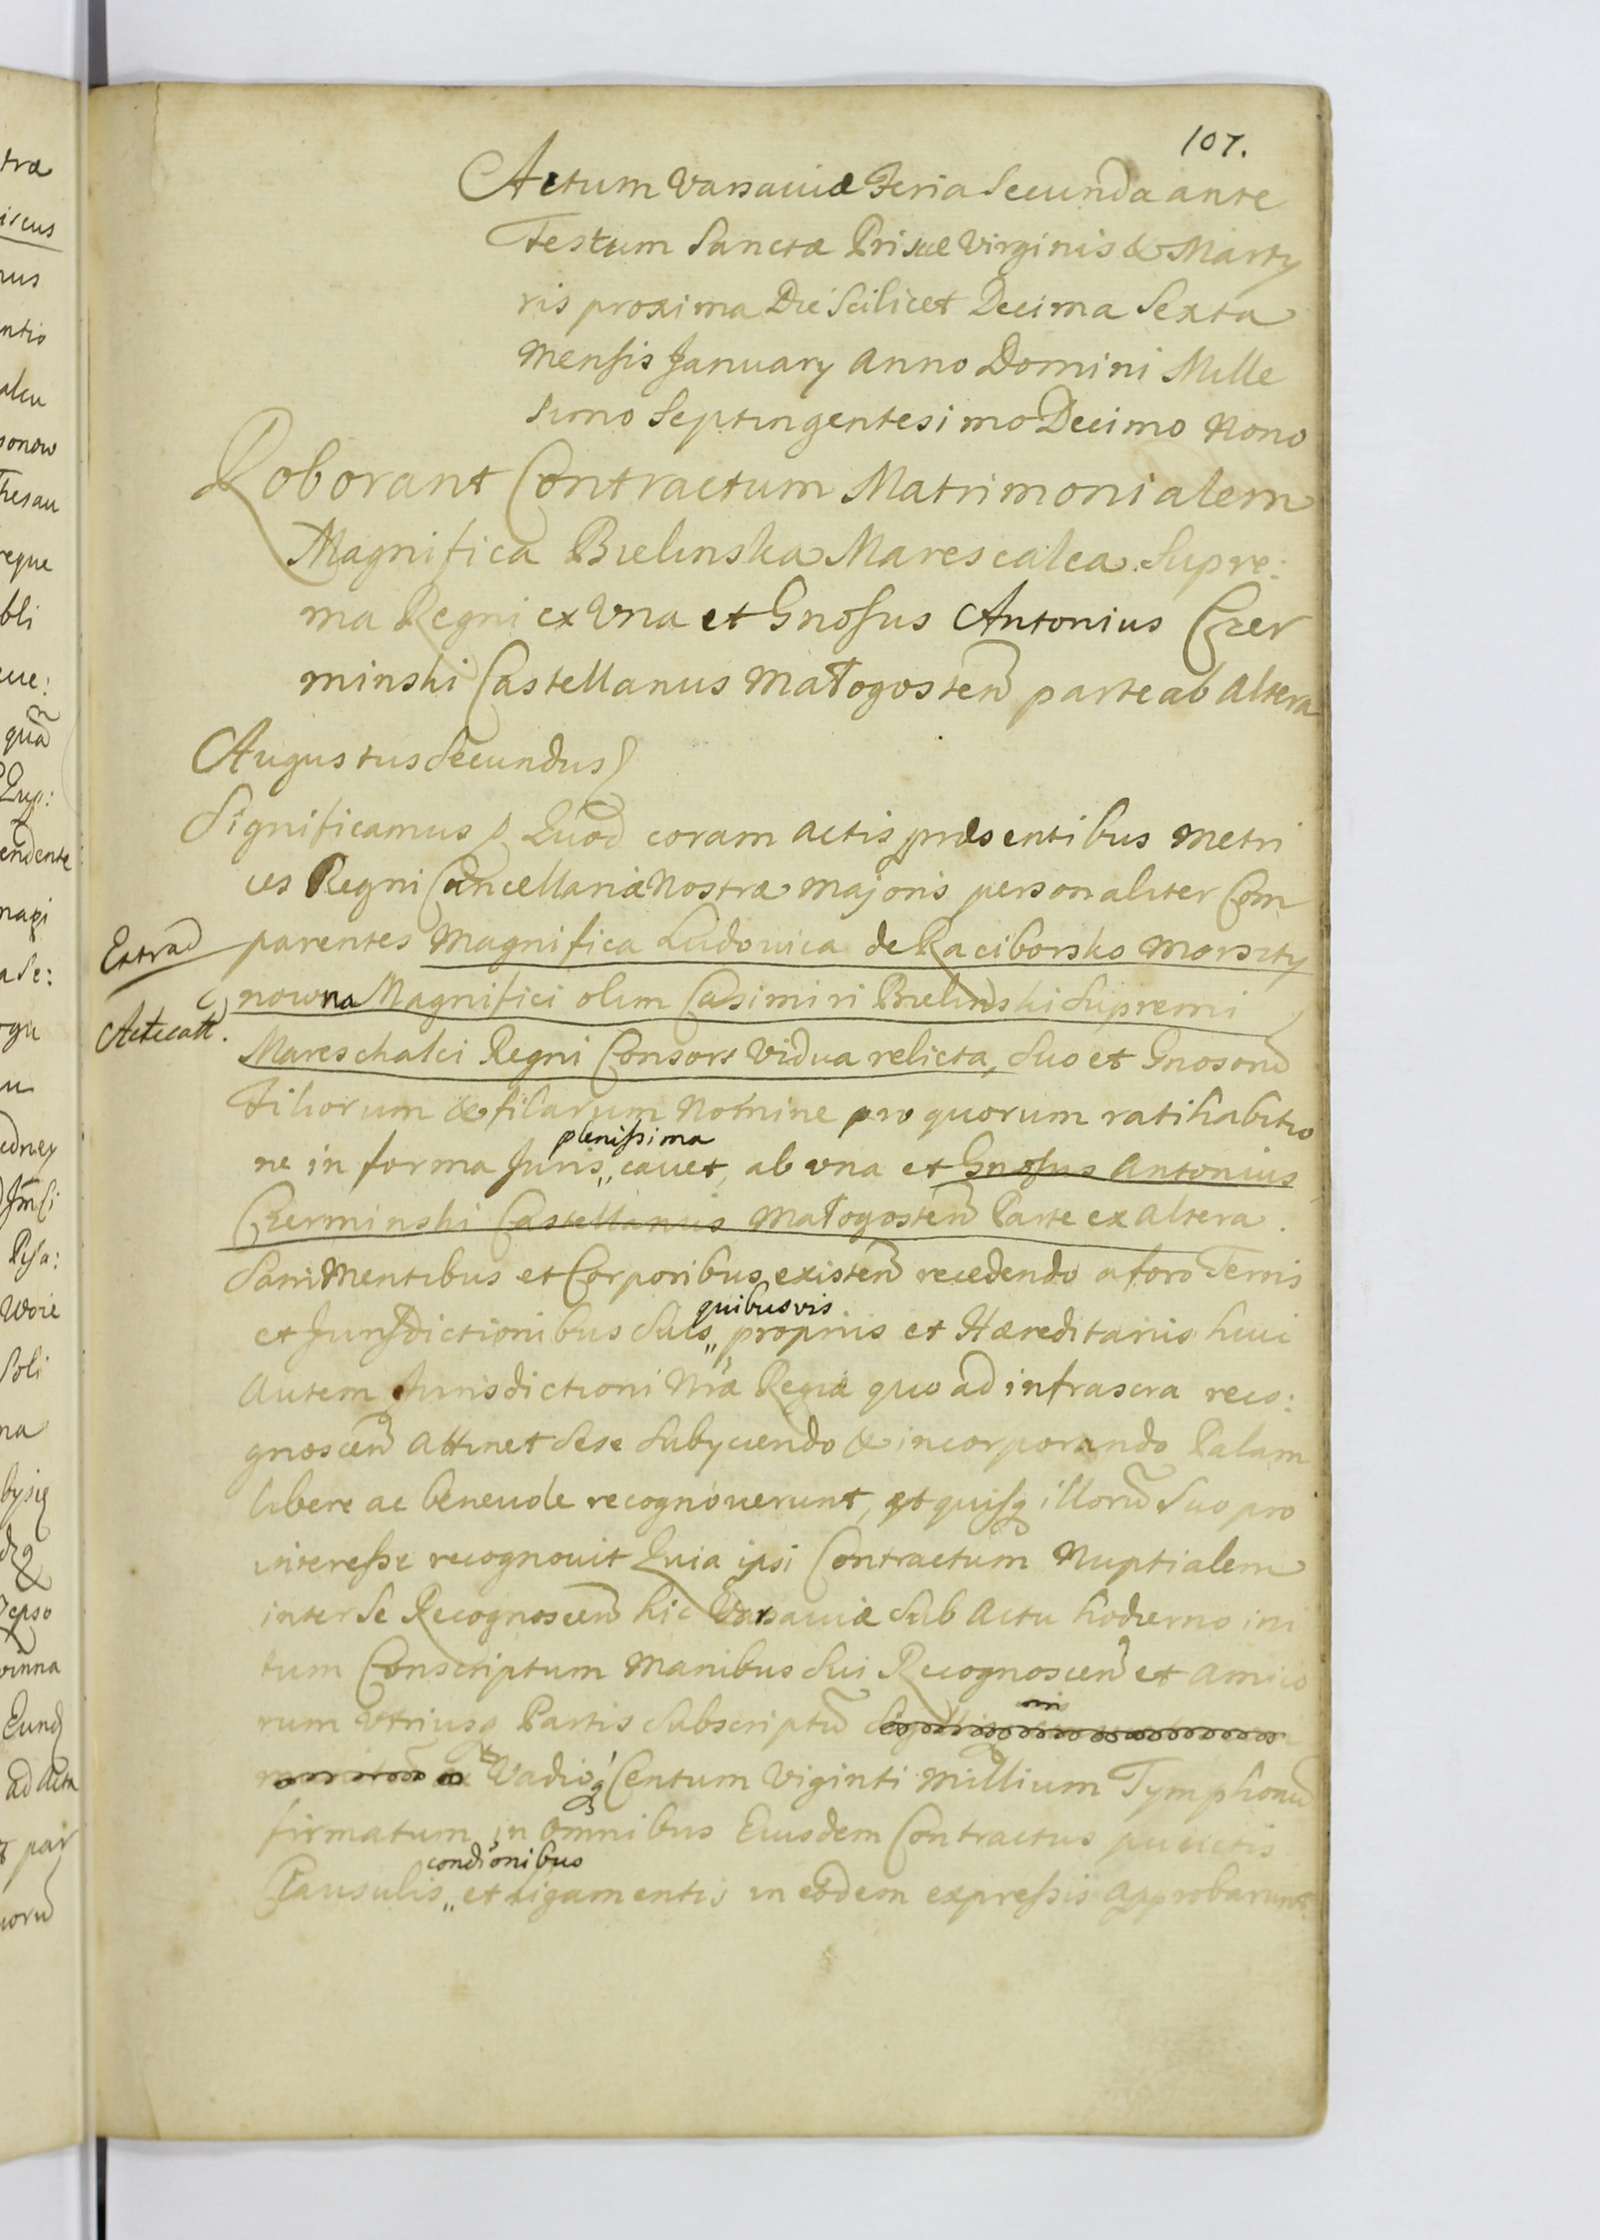 107.
Actum Varsaviæ Feria Secunda ante
Festum Sanctæ Priscæ Virginis & Marty
ris proxima Die Scilicet Decima Sexta
Mensis January Anno Domini Mille
simo Septingentesimo Decimo Nono
Roborant Contractum Matrimonialem
Magnifica Bielinska Marescalca Supre:
ma Regni ex Una et Gnosus Antonius Czer
minski Castellanus Małogosten parte ab altera
Augustus Secundus
Significamus Quod coram actis præsentibus Metri
ces Regni Cancellariæ Nostræ Majoris personaliter Com
parentes Magnifica Ludovica de Raciborsko Morszty
nowna Magnifici olim Casimiri Bielinski Supremi
Mareschalci Regni Consors Vidua relicta, Suo et Gnosorū
Filiorum & filarum Nomine pro quorum ratihabitio
plenissima
ne in forma Juris,, cavet, ab una et Gnosus Antonius
Czerminski Castellanus Małogosten Parte ex Altera.
Sani Mentibus et Corporibus existen recedendo a foro Terris
quibusvis
et Jurisdictionibus Suis,, propriis et Hæreditariis huic
Autem Jurisdictioni Nræ Regiæ quo ad infrascra reco:
gnoscen Attinet Sese Subyciendo & incorporando Palam
libere ac benevole recognoverunt, et quisq illorū Suo pro
interesse recognovit Quia ipsi Contractum Nuptialem
inter Se Recognoscen hic Varsaviæ Sub Actu hodierno ini
tum Conscriptum Manibus Sui Recognoscen et amico
rum Utriusq Partis Subscriptū
Vadioq Centum Viginti Millium Tymphonū
firmatum in Omnibus Eiusdem Contractus punctis
condionibus
Clausulis,, et Ligamentis in eodem expressis Approbarunt
Extrad
Acticatt.